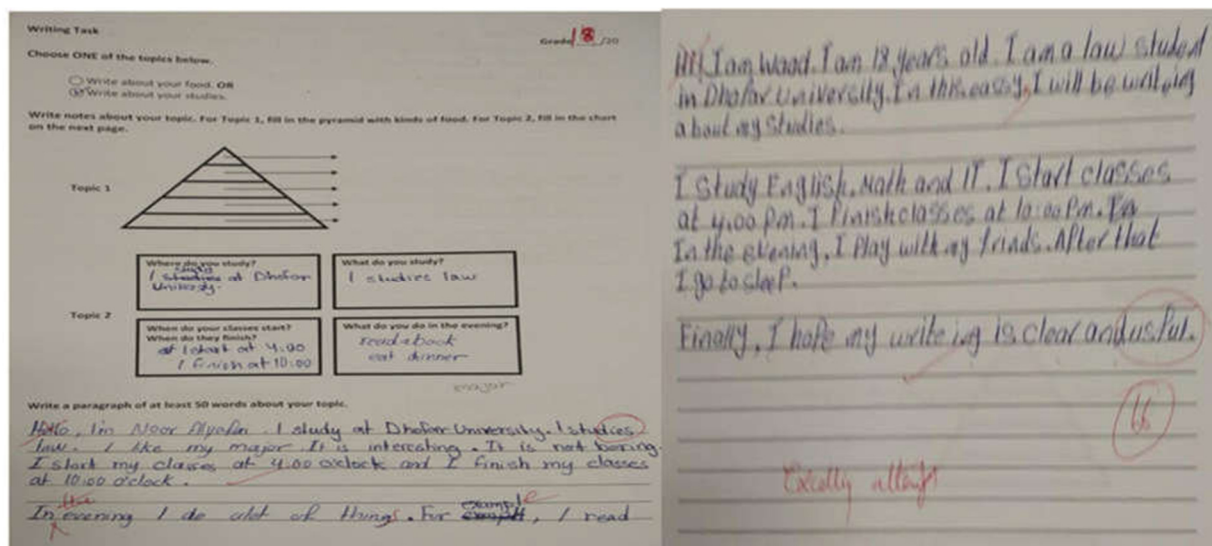 Writing Task
Grade 18 /20
Choose ONE of the topics below.
Write about your food. OR
Write about your studies.
Write notes about your topic. For Topic 1, fill in the pyramid with kinds of food. For Topic 2, fill in the chart
on the next page.
Topic 1
Topic 2
Where do you study?
I study at Dhofar
University.
What do you study?
I studies law
When do your classes start?
When do they finish?
at I start at 4.00
I finish at 10:00
What do you do in the evening?
read a book
eat dinner
major
Write a paragraph of at least 50 words about your topic.
Hello, I'm Noor. I study at Dhofar University. I studies
law. I like my major. It is interesting. It is not boring.
I start my classes at 4.00 o'clock and I finish my classes
at 10:00 o'clock.
In the evening I do alot of things. For example, I read
Hi, I am Waad. I am 18 years old. I am a law student
in Dhofar University. In this eassy, I will be writeing
about my studies.
I study English, Math and IT. I start classes
at 4:00 pm. I finish classes at 10:00 pm.
In the evening, I play with my frinds. After that
I go to sleep.
Finally, I hope my writeing is clear and usful.
66